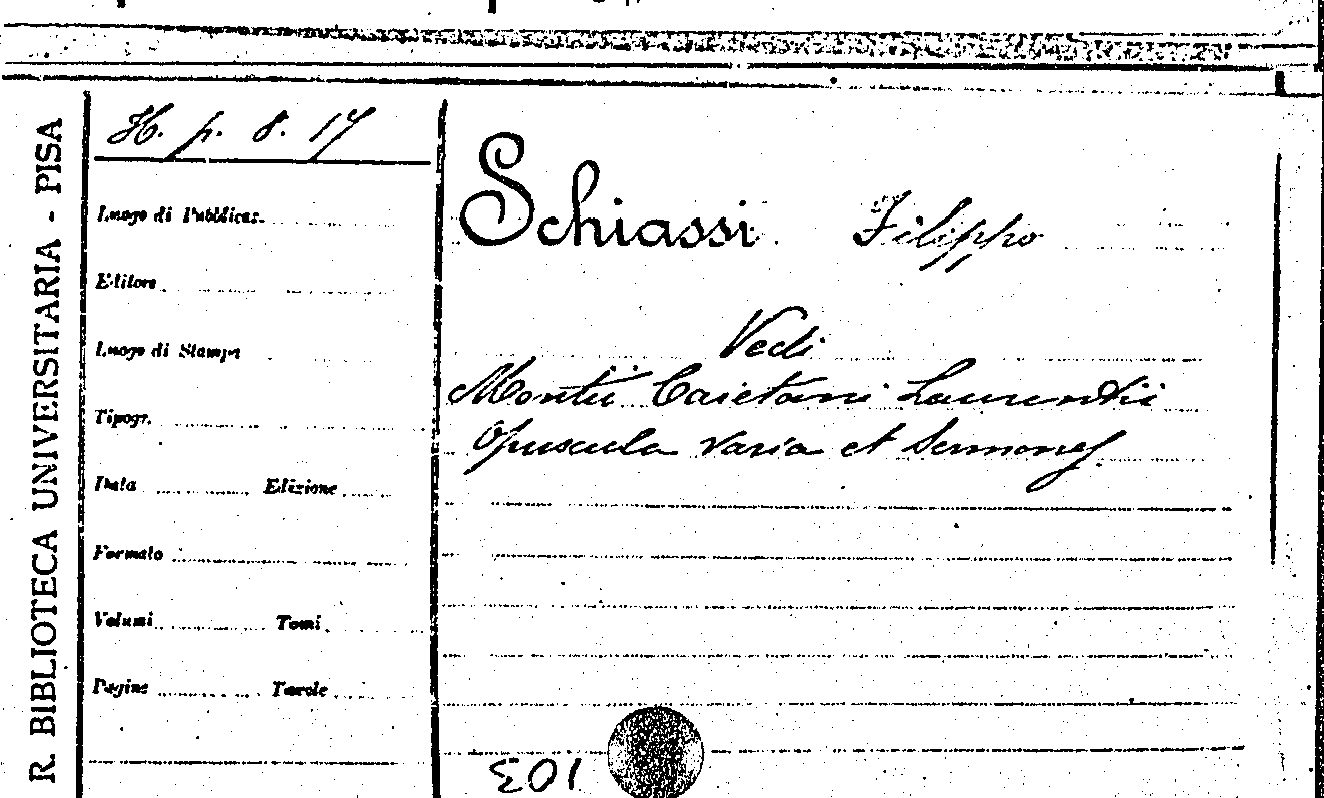 R. BIBLIOTECA UNIVERSITARIA - PISA
H. p. 8. 17
Luogo di Pubblicaz.
Editore
Luogo di Stampa
Tipogr.
Data Edizione
Formato
Volumi Tomi
Pagine Tavole
Schiassi Filippo
Vedi
Montii Caietani Laurentii
Opuscula varia et Sermones.
103